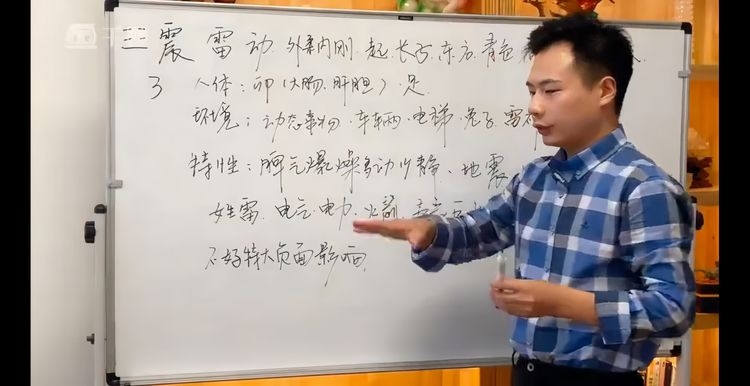 ☳ 震 雷 动. 外柔内刚. 起. 长子. 东方. 青色
3 人体: 卯(大肠. 肝胆). 足.
环境: 动态事物. 车辆. 电梯. 兔子. 雷
特性: 脾气爆燥多动少静、地震
姓雷. 电气. 电力. 火箭.
不好特大负面影响.